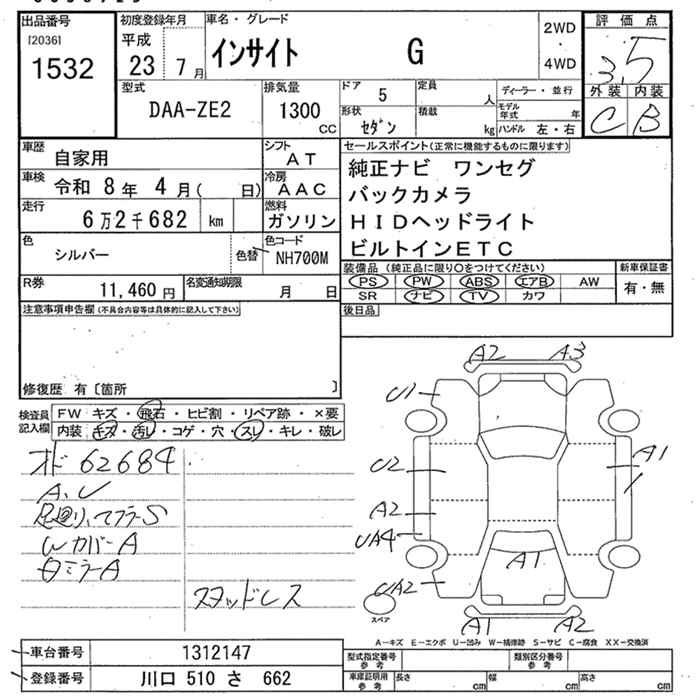 出品番号
[2036]
1532
初度登録年月
平成
23 7 月
車名・グレード
インサイト G
2WD
・
4WD
評価点
3.5
外装 内装
C B
型式
DAA-ZE2
排気量
1300
CC
ドア 5
形状 セダン
定員 人
積載 kg
ディーラー・並行
モデル年式 年
ハンドル 左・右
車歴 自家用
シフト AT
車検 令和 8 年 4 月( 日)
冷房 AAC
走行 6万2千682 km
燃料 ガソリン
色 シルバー 色替
色コード NH700M
R券 11,460 円
名変通知期限 月 日
セールスポイント(正常に機能するものに限ります)
純正ナビ ワンセグ
バックカメラ
HIDヘッドライト
ビルトインETC
装備品(純正品に限り○をつけてください)
PS PW ABS エアB AW
SR ナビ TV カワ
新車保証書
有・無
後日品
注意事項申告欄(不具合内容等は具体的に記入して下さい)
修復歴 有〔箇所 〕
検査員記入欄
FW キズ・飛石・ヒビ割・リペア跡・×要
内装 キズ・汚レ・コゲ・穴・スレ・キレ・破レ
オド 62684
A、U
足廻り、マフラーS
Wカバー A
ミラーA
スタッドレス
A2 A3
U1
U2
A1
A2
UA4
A1
UA2
スペア
A1 A2
A-キズ E-エクボ U-凹み W-補修跡 S-サビ C-腐食 XX-交換済
車台番号 1312147
登録番号 川口 510 さ 662
型式指定番号
参考
類別区分番号
参考
車庫証明用
参考
長さ cm
幅 cm
高さ cm